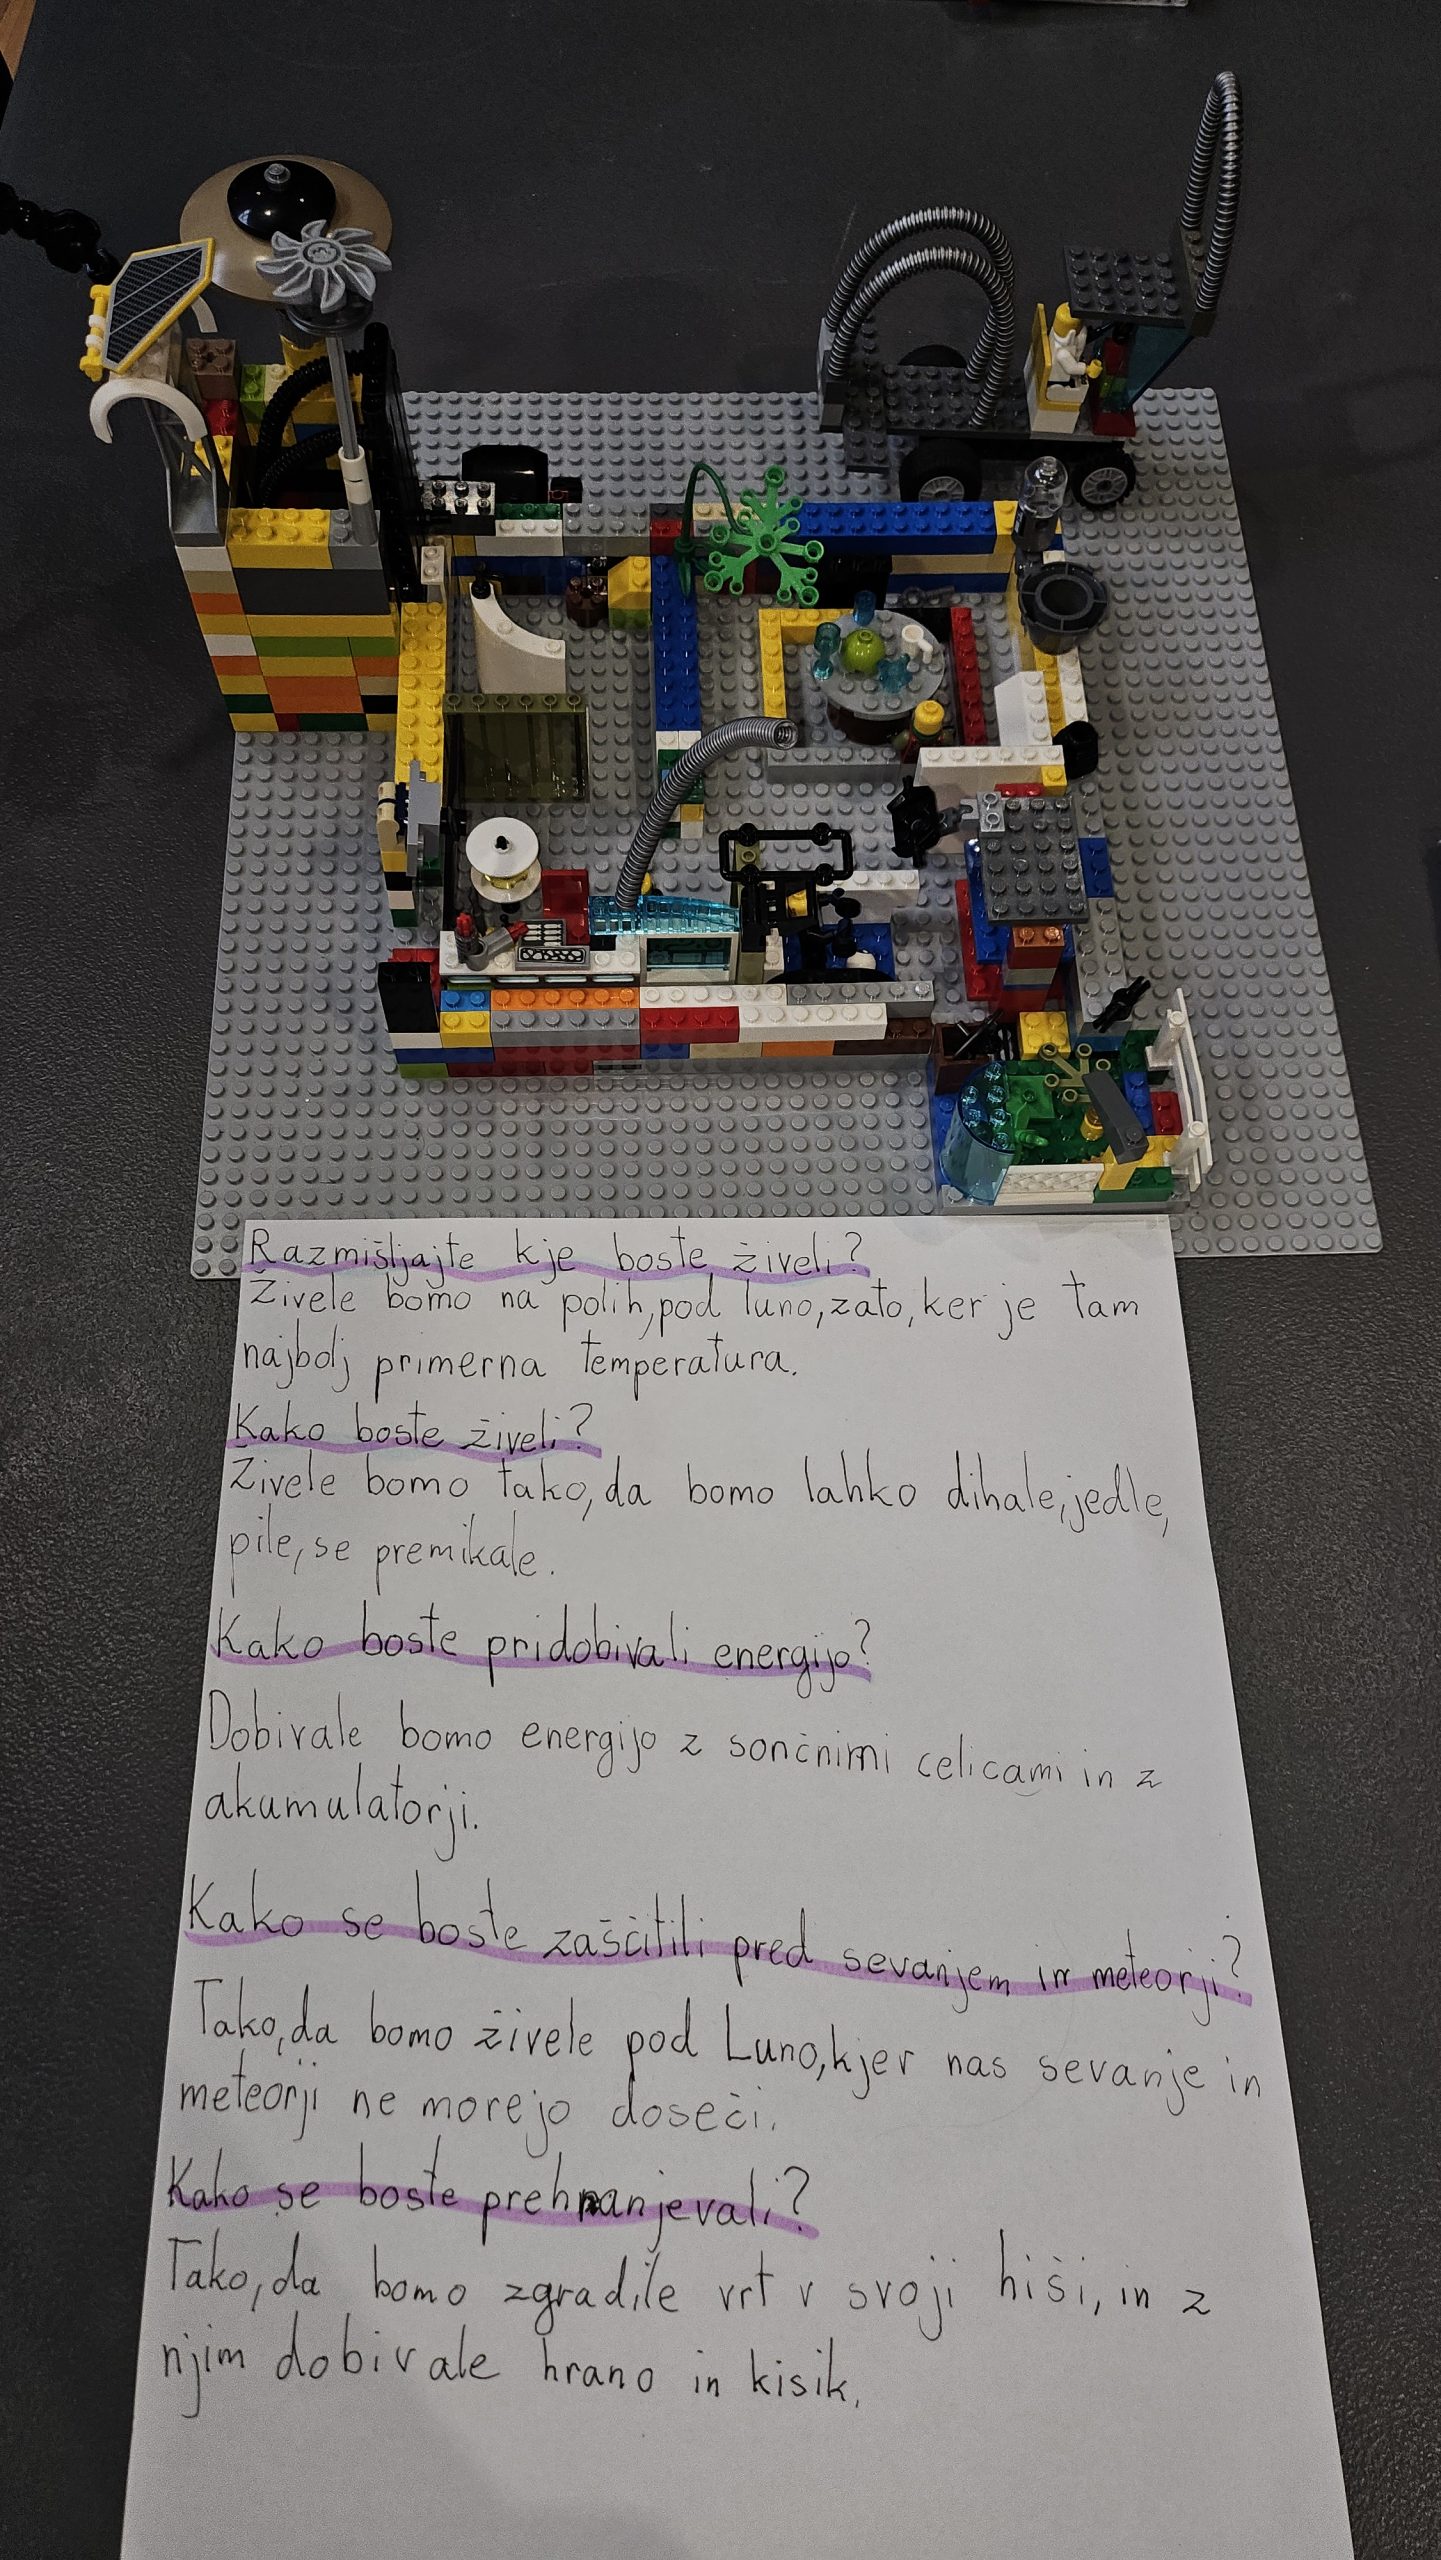 Razmišljajte kje boste živeli?
Živele bomo na polih, pod luno, zato, ker je tam
najbolj primerna temperatura.
Kako boste živeli?
Živele bomo tako, da bomo lahko dihale, jedle,
pile, se premikale.
Kako boste pridobivali energijo?
Dobivale bomo energijo z sončnimi celicami in z
akumulatorji.
Kako se boste zaščitili pred sevanjem in meteorji?
Tako, da bomo živele pod Luno, kjer nas sevanje in
meteorji ne morejo doseči.
Kako se boste prehranjevali?
Tako, da bomo zgradile vrt v svoji hiši, in z
njim dobivale hrano in kisik.